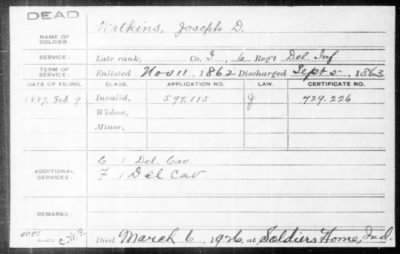 DEAD
NAME OF SOLDIER
Wilkins, Joseph D.
SERVICE
Late rank, Co. I, 6 Reg't Del. Inf
TERM OF SERVICE
Enlisted Nov 11, 1862 Discharged Sept 5, 1863
DATE OF FILING. CLASS. APPLICATION NO. CERTIFICATE NO.
1887, Feb. 9 Invalid, 597.115 J 729.226
Widow,
Minor,
ADDITIONAL SERVICES:
C 1 Del. Cav.
F 1 Del Cav
REMARKS:
Died March 6, 1926, at Soldiers Home, Ind.